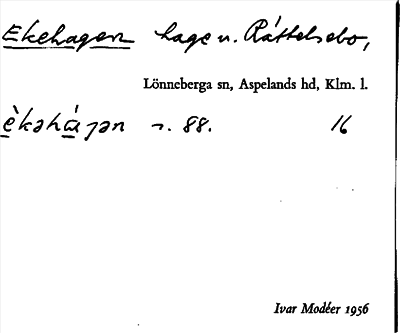 Ekehagen hage u. Råttelsebo,
Lönneberga sn, Aspelands hd, Klm. l.
è̠kəhá̠gən 88. 16
Ivar Modéer 1956